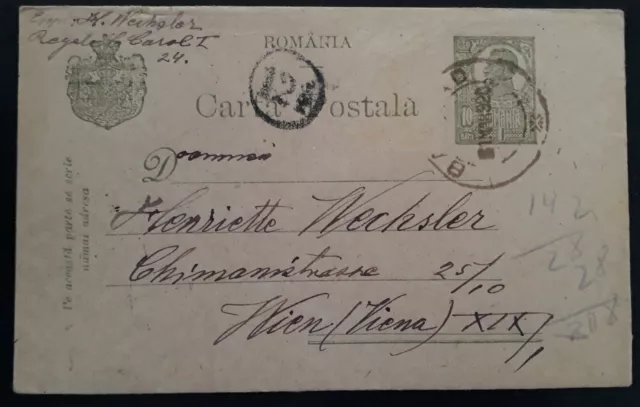 H. Wechsler
Regele Carol I
24.
ROMÂNIA
12
Carta Postala
10
BANI
Doamnei
Henriette Wechsler
Chimanistrasse 25/10
Wien (Viena) XIX/1
Pe această parte se scrie
numai adresa
14 2
28
28